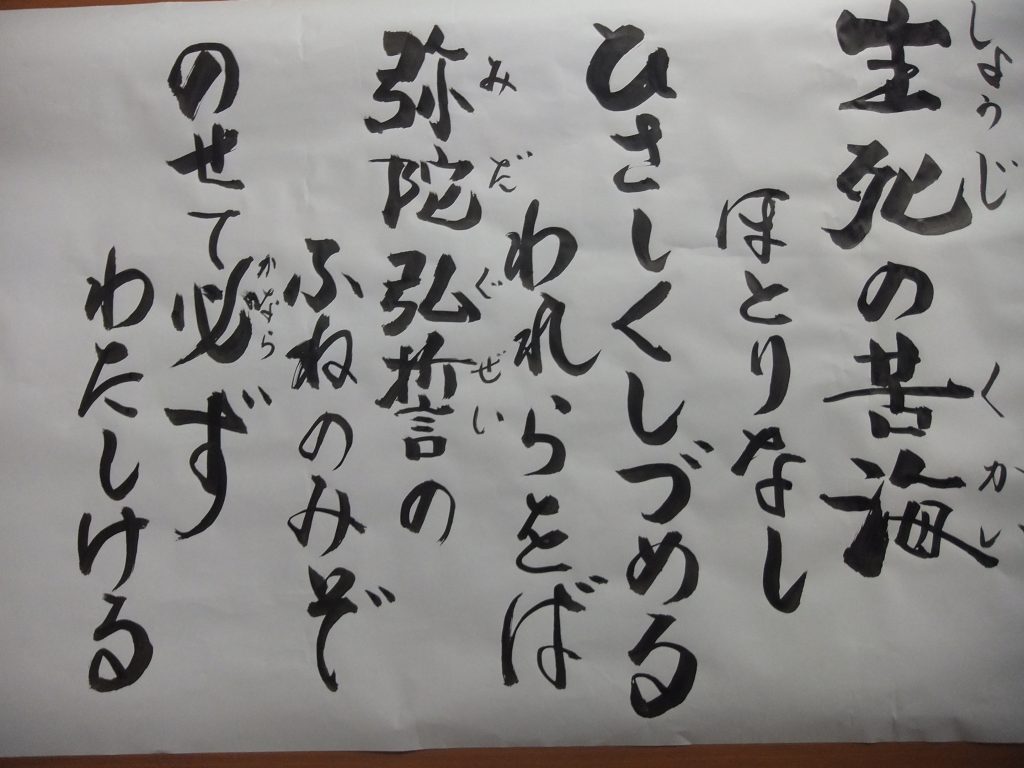 生死の苦海
しょうじ くかい
ほとりなし
ひさしくしづめる
われらをば
弥陀弘誓の
みだ ぐぜい
ふねのみぞ
のせて必ず
かなら
わたしける